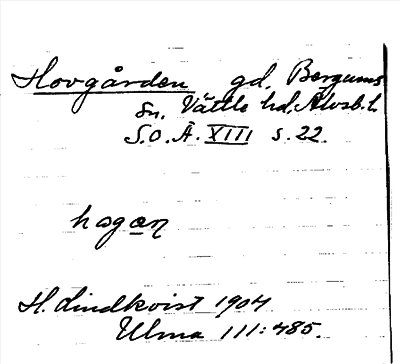 Hovgården gd, Bergums
sn. Vättle hd, Älvsb. l.
S.O.Ä. XIII s. 22.
hagan
H. Lindkvist 1904
Ulma 111:485.